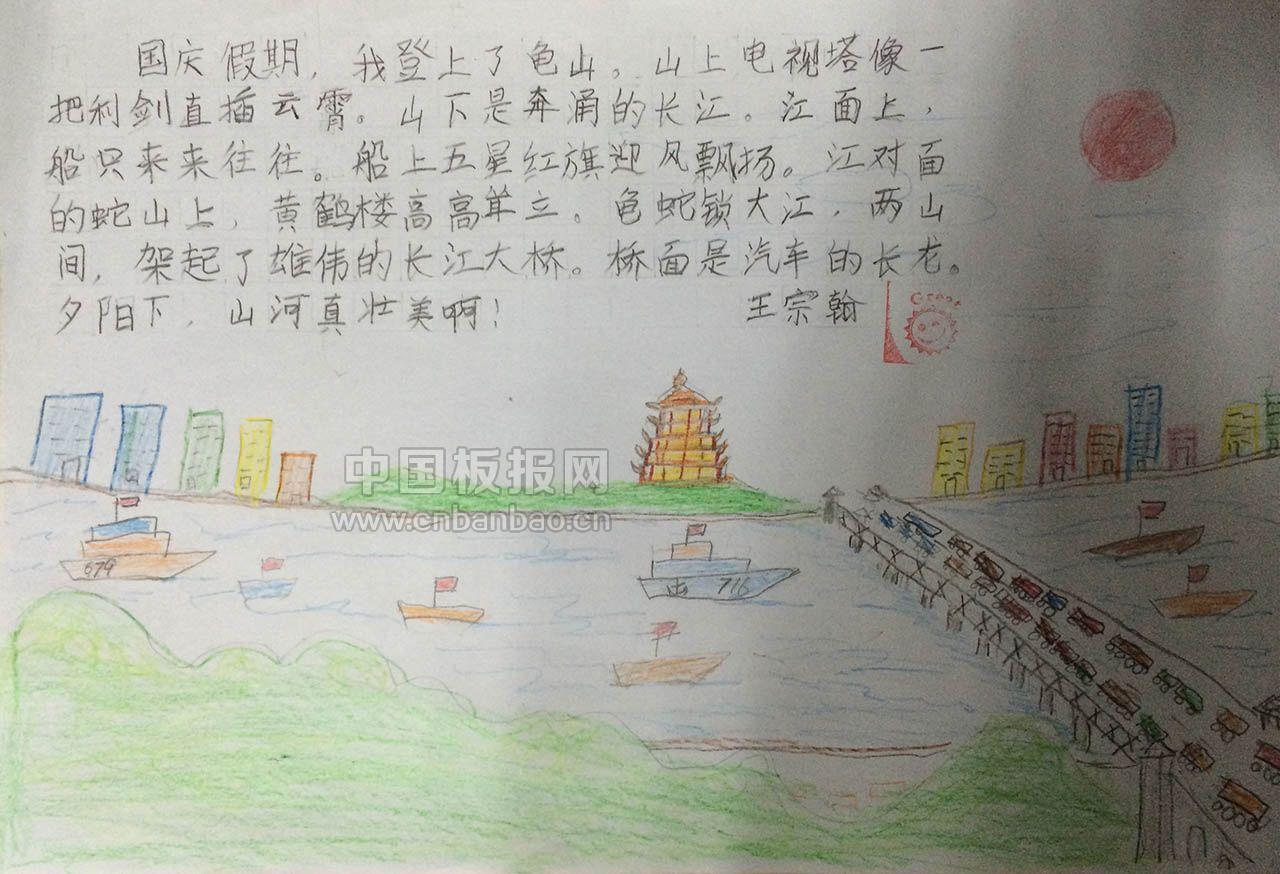 国庆假期，我登上了龟山。山上电视塔像一
把利剑直插云霄。山下是奔涌的长江。江面上，
船只来来往往。船上五星红旗迎风飘扬。江对面
的蛇山上，黄鹤楼高高耸立。龟蛇锁大江，两山
间，架起了雄伟的长江大桥。桥面是汽车的长龙。
夕阳下，山河真壮美啊！
王宗翰
Great
中国板报网
www.cnbanbao.cn
679
716